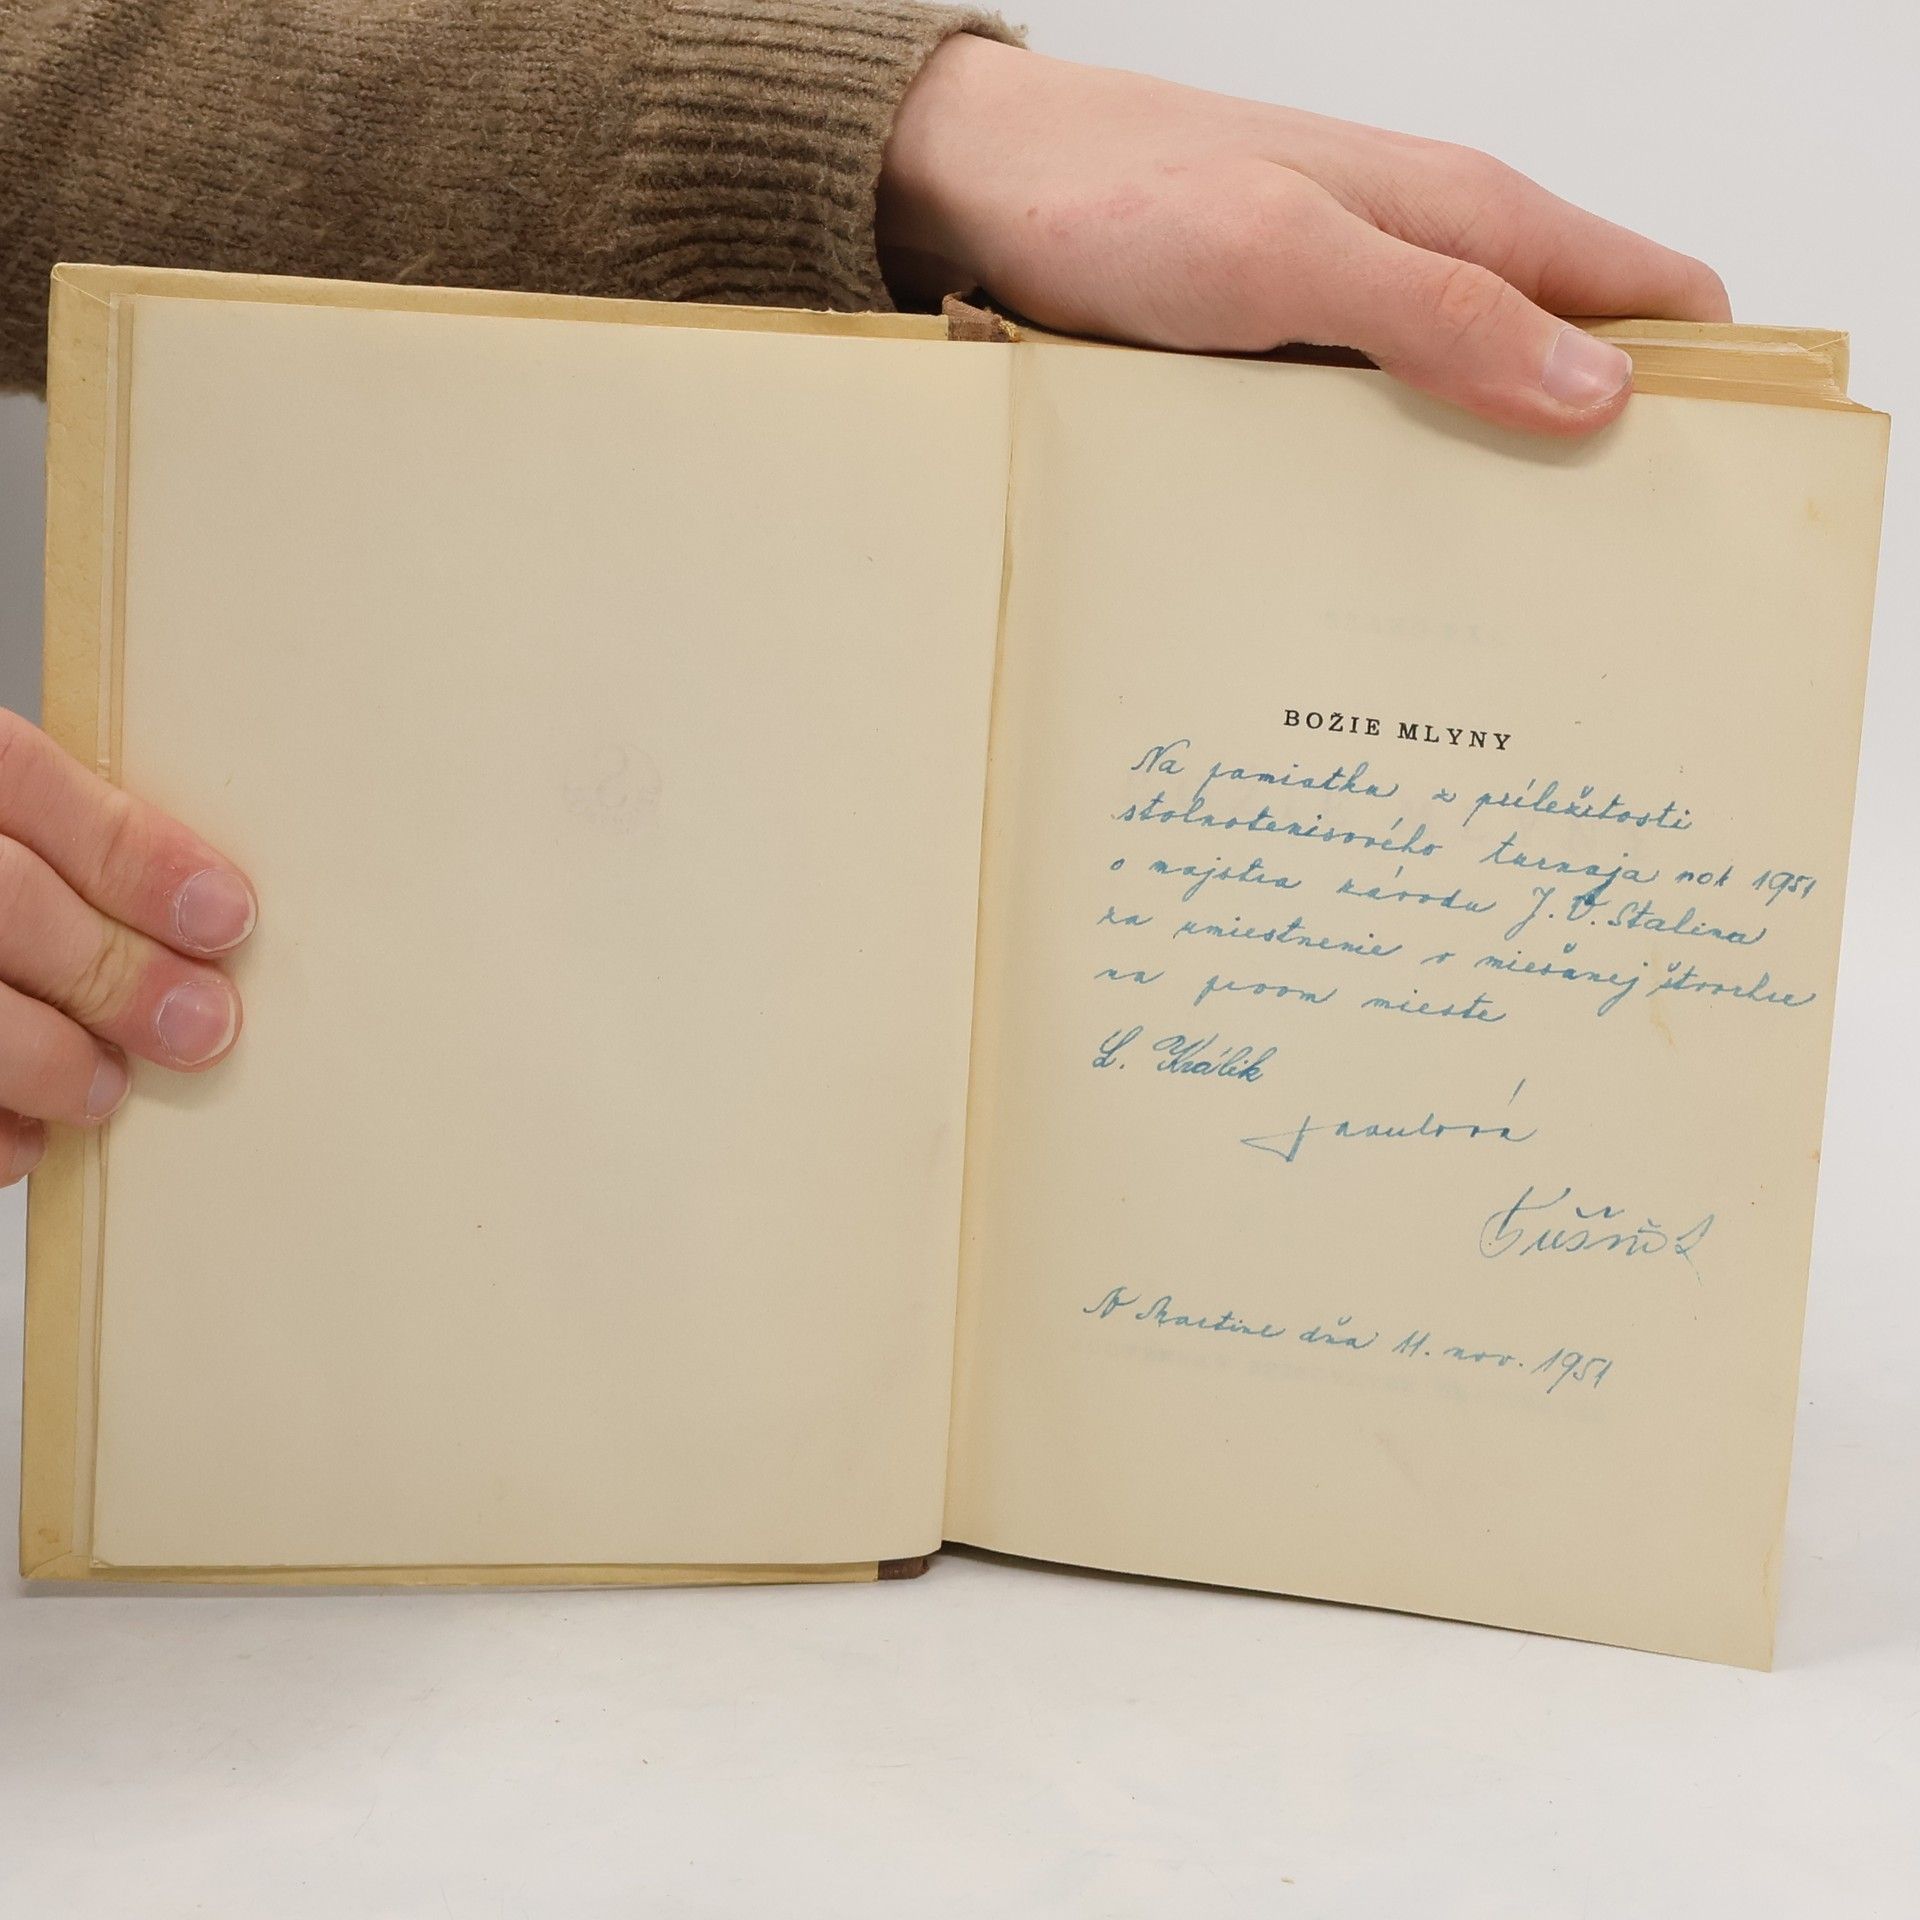 BOŽIE MLYNY
Na pamiatku z príležitosti
stolnotenisového turnaja rok 1951
o majstra závodu J. V. Stalina
za umiestnenie v miešanej štvorhre
na prvom mieste
L. Králik
V Martine dňa 11. nov. 1951